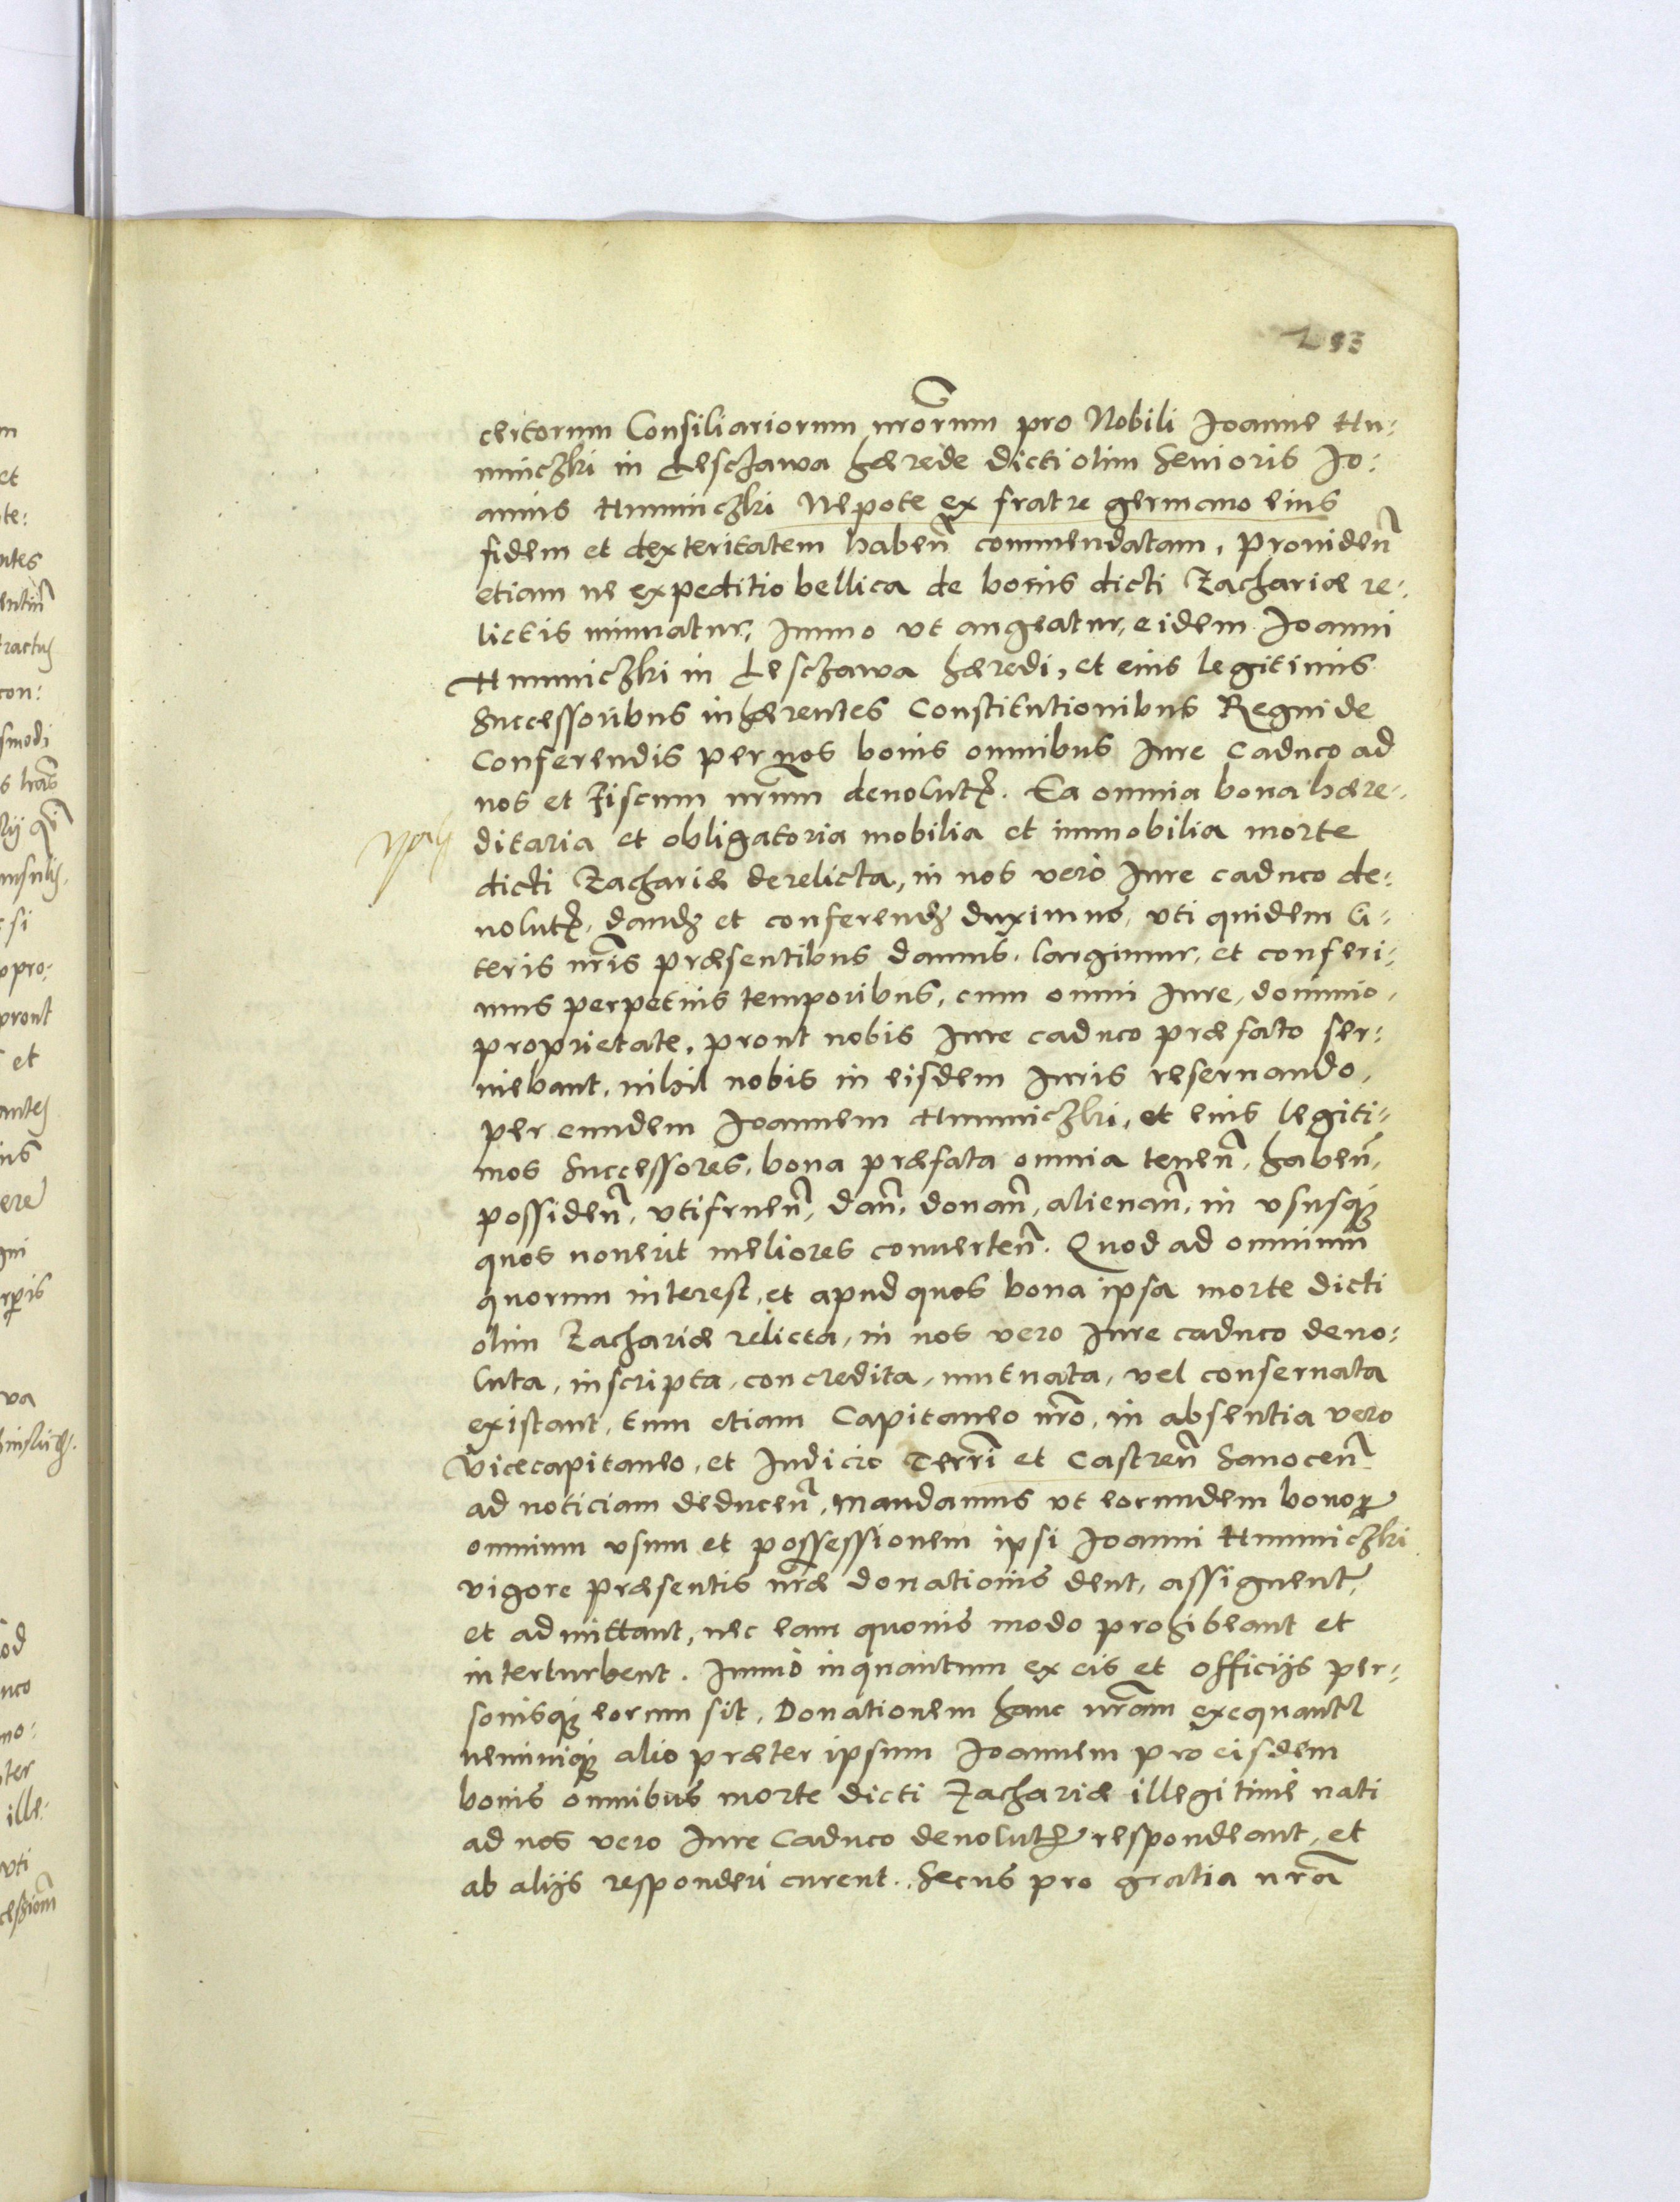 293
certorum Consiliariorum nrorum pro Nobili Joanne Hu-
miniczki in Lesczawa hærede dicti olim Senioris Jo-
annis Huminiczki Nepote ex fratre germano eius
fidem et dexteritatem haben̄ commendatam, Providen̄
etiam ne expeditio bellica de bonis dicti Zachariæ re-
lictis minuatur, Immo vt augeatur, eidem Joanni
Huminiczki in Lesczawa hæredi, et eius legitimis
Successoribus inhærentes Constitutionibus Regni de
Conferendis per nos bonis omnibus Iure Caduco ad
nos et Fiscum nrūm deuolutꝭ. Ea omnia bona hære-
ditaria et obligatoria mobilia et immobilia morte
dicti Zachariæ derelicta, in nos vero Iure caduco de-
uolutꝭ, dandꝫ et conferendꝫ duximus, vti quidem li-
teris nrīs præsentibus damus, largimur, et conferi-
mus perpetuis temporibus, cum omni Iure, dominio,
proprietate, prout nobis Iure caduco præfato ser-
uiebant, nihil nobis in eisdem Iuris reseruando,
per eundem Joannem Huminiczki, et eius legiti-
mos Successores, bona præfata omnia tenen̄, haben̄,
possiden̄, vtifruen̄, dan̄, donan̄, alienan̄, in vsusqꝫ
quos nouerit meliores conuerten̄. Quod ad omnium
quorum interest, et apud quos bona ipsa morte dicti
olim Zachariæ relicta, in nos vero Iure caduco deuo-
luta, inscripta, concredita, mutuata, vel conseruata
existant, tum etiam Capitaneo nrō, in absentia vero
Vicecapitaneo, et Iudicio Terrī et Castren̄ Sanocen̄
ad noticiam deducen̄, mandamus vt eorundem bonoꝝ
omnium vsum et possessionem ipsi Joanni Huminiczki
vigore præsentis nrǣ donationis dent, assignent,
et admittant, nec eam quouis modo prohibeant et
interturbent. Immo inquantum ex eis et officijs per-
sonisqꝫ eorum sit, Donationem hanc nrām exequantꝛ
neminiqꝫ alio præter ipsum Joannem pro eisdem
bonis omnibus morte dicti Zachariæ illegitimè nati
ad nos vero Iure Caduco deuolutꝭ respondeant, et
ab alijs responderi curent. Secus pro gratia nrā